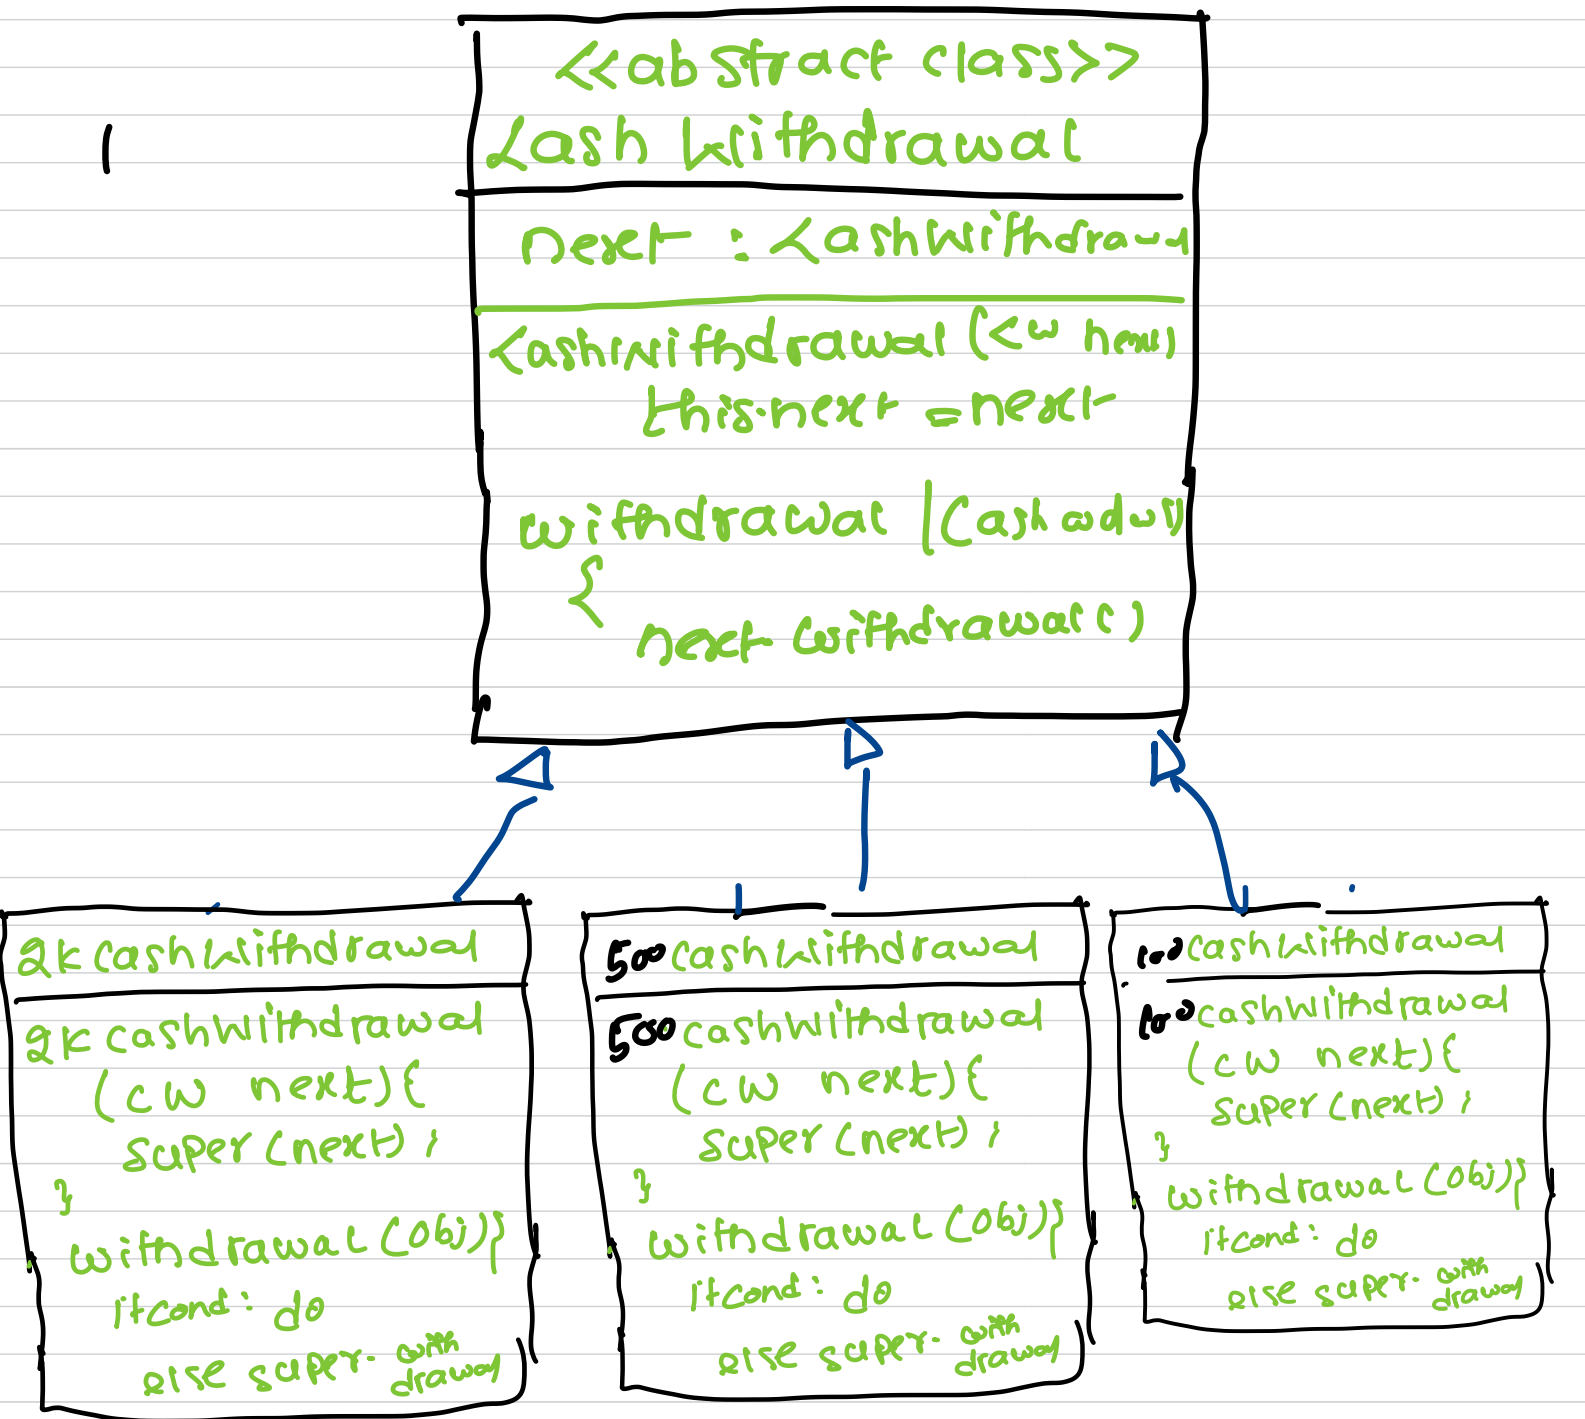 <<abstract class>>
Cash Withdrawal
next : CashWithdrawal
CashWithdrawal (CW next)
this.next = next
withdrawal (Cash
{
next withdrawal()
2K CashWithdrawal
2K CashWithdrawal
(CW next){
super(next);
}
withdrawal(obj){
if cond: do
else super. with
drawal
500 CashWithdrawal
500 CashWithdrawal
(CW next){
super(next);
}
withdrawal(obj){
if cond: do
else super. with
drawal
100 CashWithdrawal
100 CashWithdrawal
(CW next){
super(next);
}
withdrawal(obj){
if cond: do
else super. with
drawal